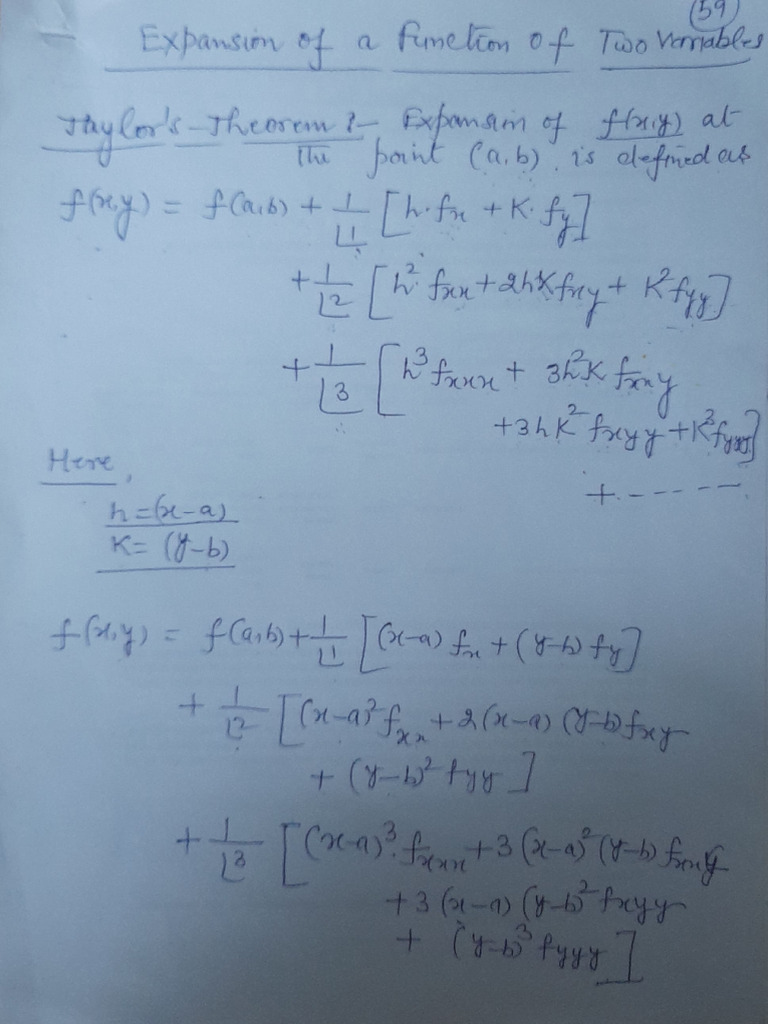 59
Expansion of a function of Two Variables
Taylor's Theorem :- Expansion of f(x,y) at
The point (a,b). is defined as
f(x,y) = f(a,b) + 1/⌊1 [h.fx + K.fy]
+ 1/⌊2 [h² fxx + 2hK fxy + K² fyy]
+ 1/⌊3 [h³ fxxx + 3h²K fxxy
+3hK² fxyy + K³ fyyy]
+ ------
Here,
h = (x-a)
K = (y-b)
f(x,y) = f(a,b) + 1/⌊1 [(x-a) fx + (y-b) fy]
+ 1/⌊2 [(x-a)² fxx + 2(x-a) (y-b) fxy
+ (y-b)² fyy]
+ 1/⌊3 [(x-a)³ fxxx + 3(x-a)² (y-b) fxxy
+3(x-a) (y-b)² fxyy
+ (y-b)³ fyyy]